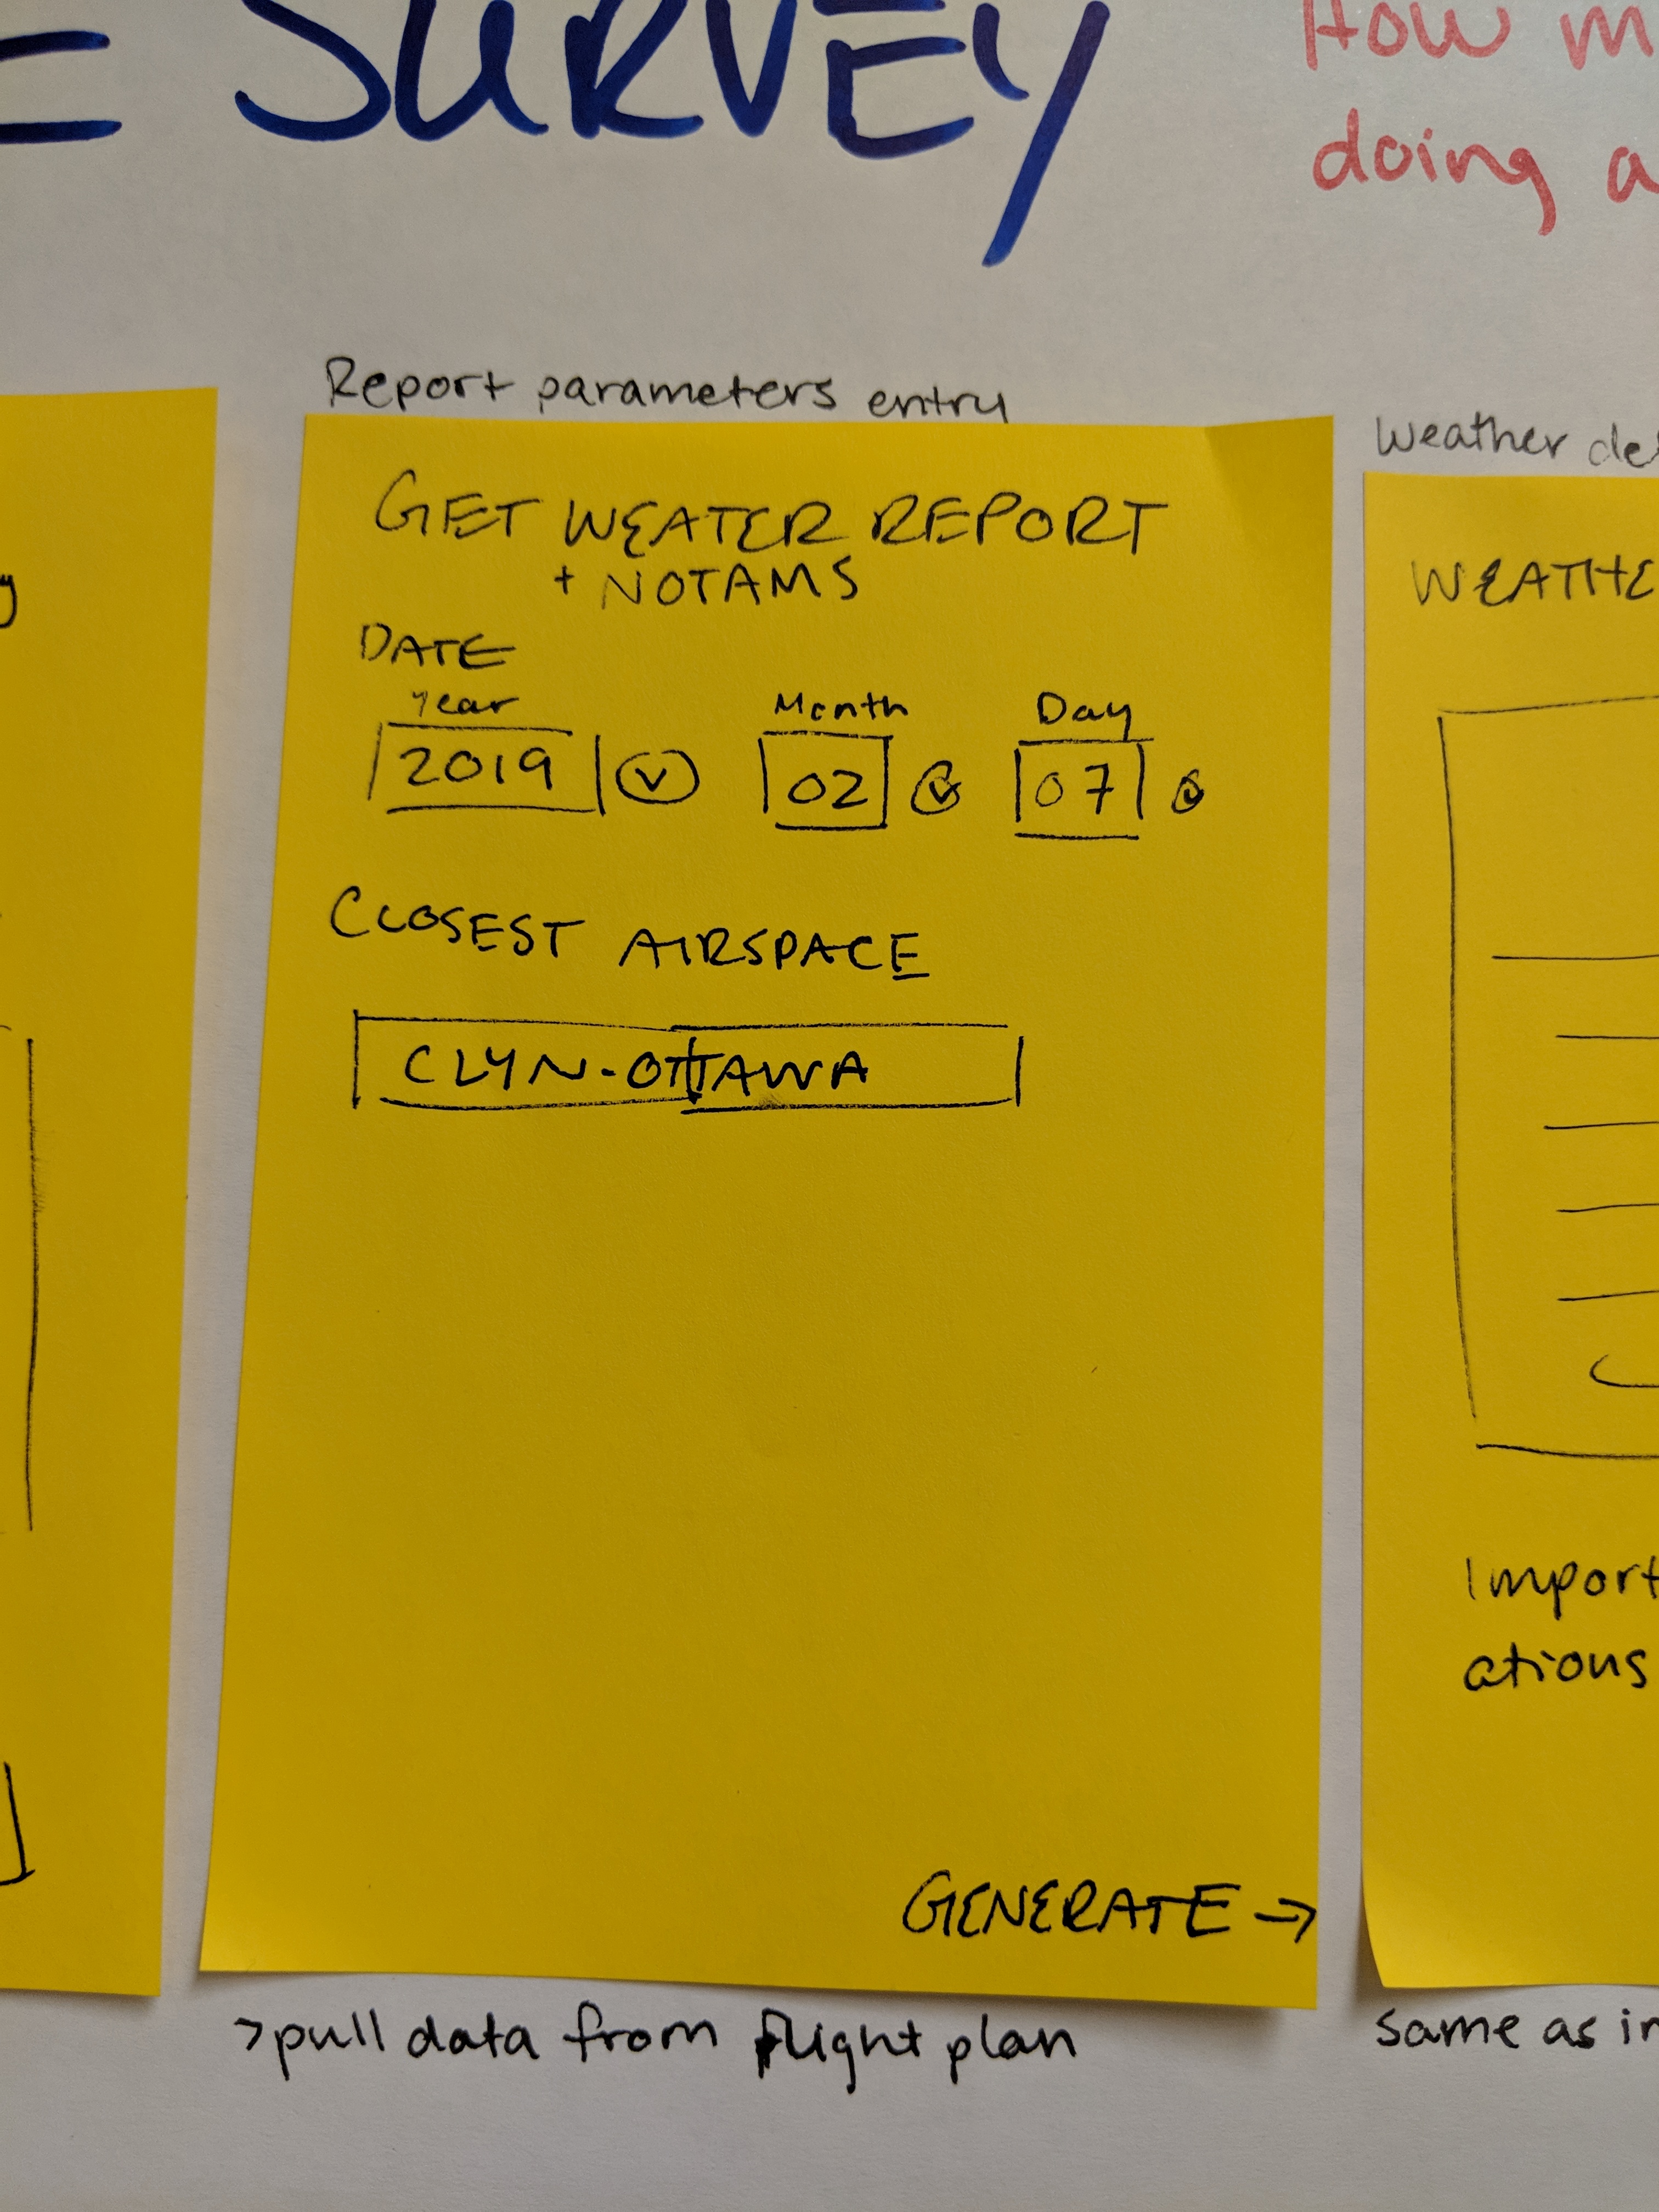 SURVEY
How m
doing a
Report parameters entry
GET WEATER REPORT
+ NOTAMS
DATE
Year Month Day
2019 02 07
CLOSEST AIRSPACE
CLYN-OTTAWA
GENERATE →
>pull data from flight plan
Weather de
WEATHE
Import
ations
same as in